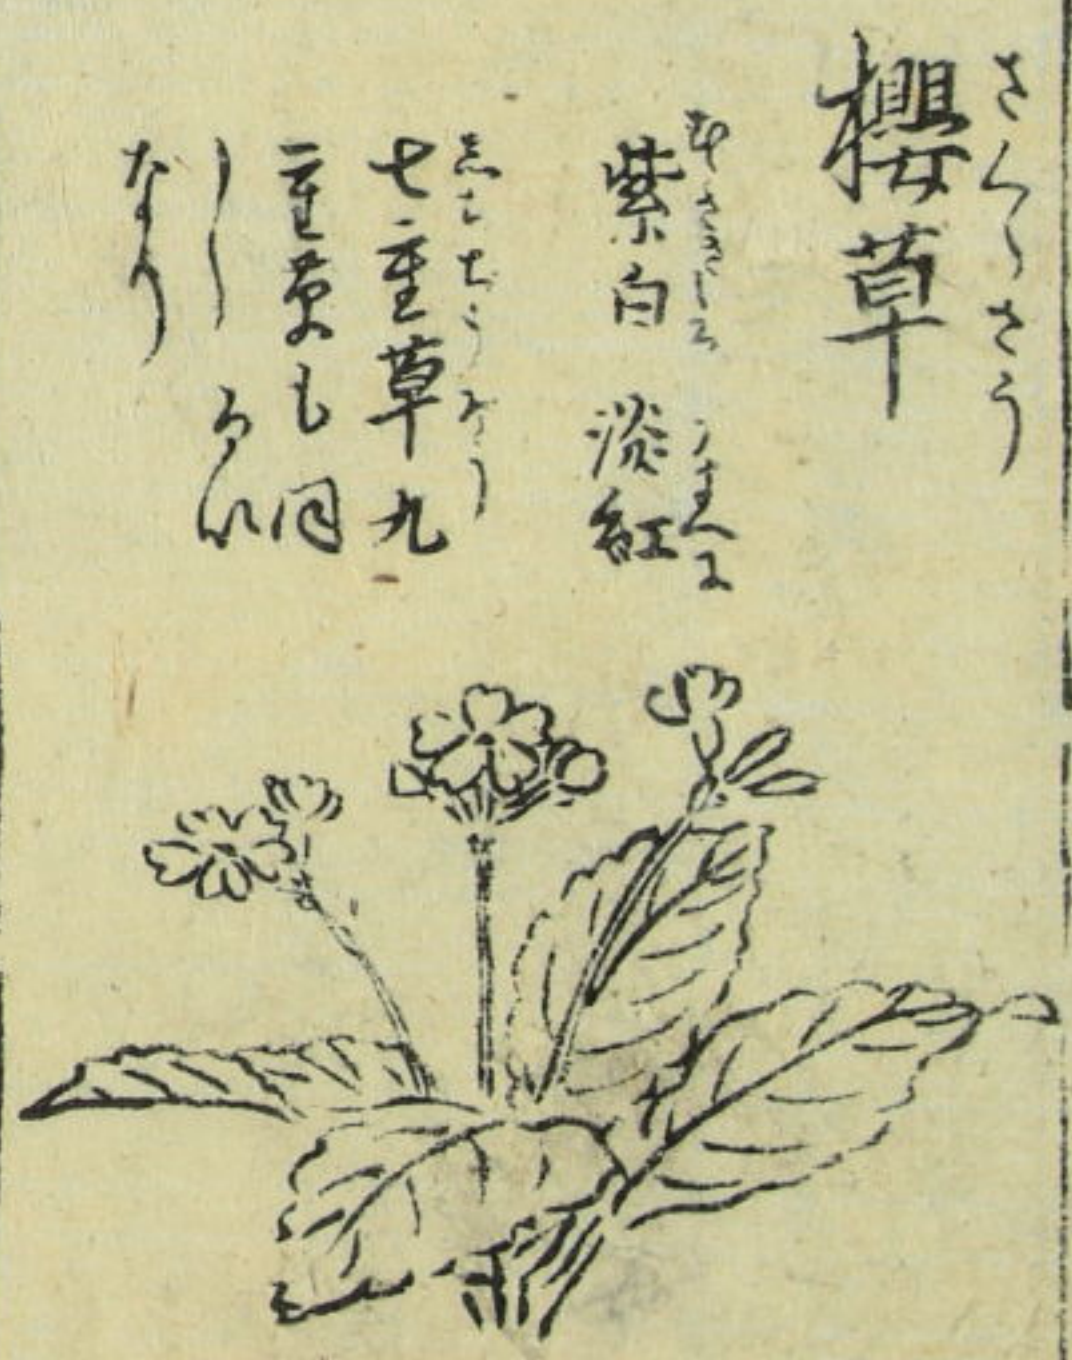 さくらさう
櫻草
むらさきしろ うすべに
紫白 淡紅
しちぢうさう
七重草九
重草も同
し るい
なり